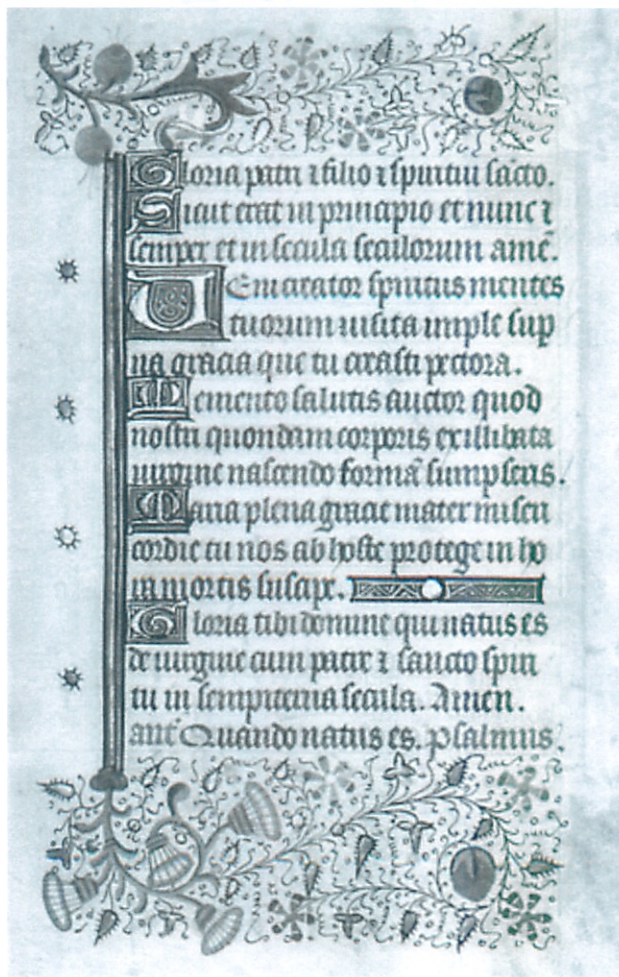 Gloria patri ⁊ filio ⁊ spiritui sācto.
Sicut erat in principio et nunc ⁊
semper et in secula seculorum amē.
Veni creator spiritus mentes
tuorum uisita imple sup
na gracia que tu creasti pectora.
Memento salutis auctor quod
nostri quondam corporis ex illibata
uirgine nascendo formā sumpseris.
Maria plena gracie mater miseri
cordie tu nos ab hoste protege in ho
ra mortis suscipe.
Gloria tibi domine qui natus es
de uirgine cum patre ⁊ sancto spiri
tu in sempiterna secula. Amen.
anť Quando natus es. psalmus.